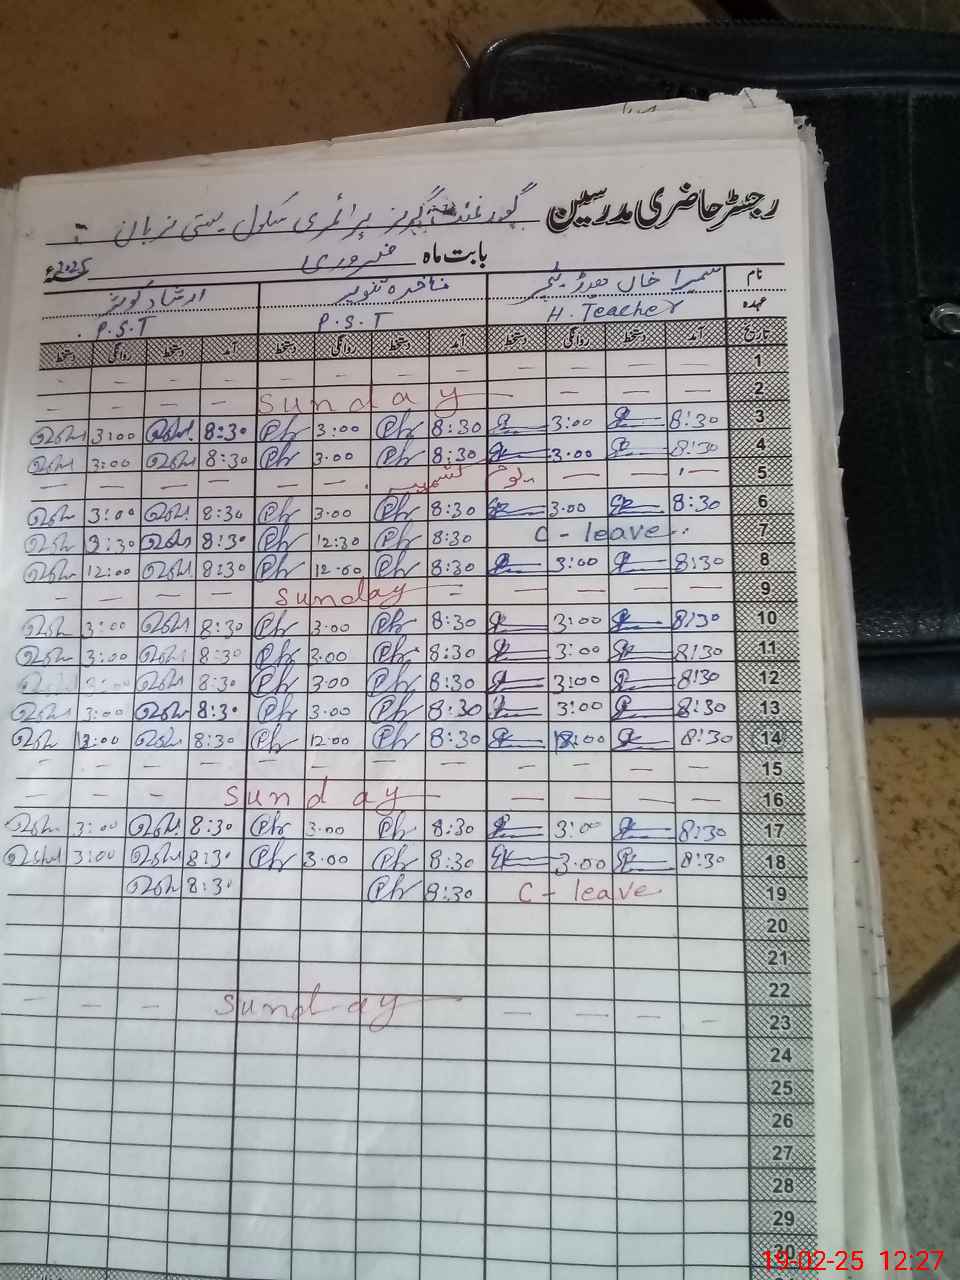 رجسٹر حاضری مدرسین گورنمنٹ گرلز پرائمری سکول بستی زبان
بابت ماہ فروری 2025ء
نام سمیرا خان ہیڈ ٹیچر ناخدہ تنویر ارشاد کوثر
عہدہ H. Teacher P.S.T P.S.T
تاریخ آمد دستخط روانگی دستخط آمد دستخط روانگی دستخط آمد دستخط روانگی دستخط
1 — — — — — — — — — — — —
2 — — — — Sunday — — —
3 8:30 3:00 8:30 Ph 3:00 Ph 8:30 3:00
4 8:30 3:00 8:30 Ph 3.00 Ph 8:30 3:00
5 — — — یوم کشمیر — — — — — —
6 8:30 3:00 8:30 Ph 3.00 Ph 8:30 3:00
7 C - leave 8:30 Ph 12:30 Ph 8:30
8 8:30 3:00 8:30 Ph 12.00 Ph 8:30 12:00
9 — — — — Sunday — — — —
10 8:30 3:00 8:30 Ph 3.00 Ph 8:30 3:00
11 8:30 3:00 8:30 Ph 3.00 Ph 8:30 3:00
12 8:30 3:00 8:30 Ph 3.00 Ph 8:30 3:00
13 8:30 3:00 8:30 Ph 3.00 Ph 8:30 3:00
14 8:30 8:30 Ph 12.00 Ph 8:30
15 — — — — — — — — — — — —
16 — — — — Sunday — — —
17 8:30 3:00 8:30 Ph 3.00 Ph 8:30 3:00
18 8:30 3.00 8:30 Ph 3.00 Ph 8:30 3:00
19 C - leave 8:30 Ph 8:30
20
21
22
23 — — — — Sunday — — —
24
25
26
27
28
29
30
19-02-25 12:27